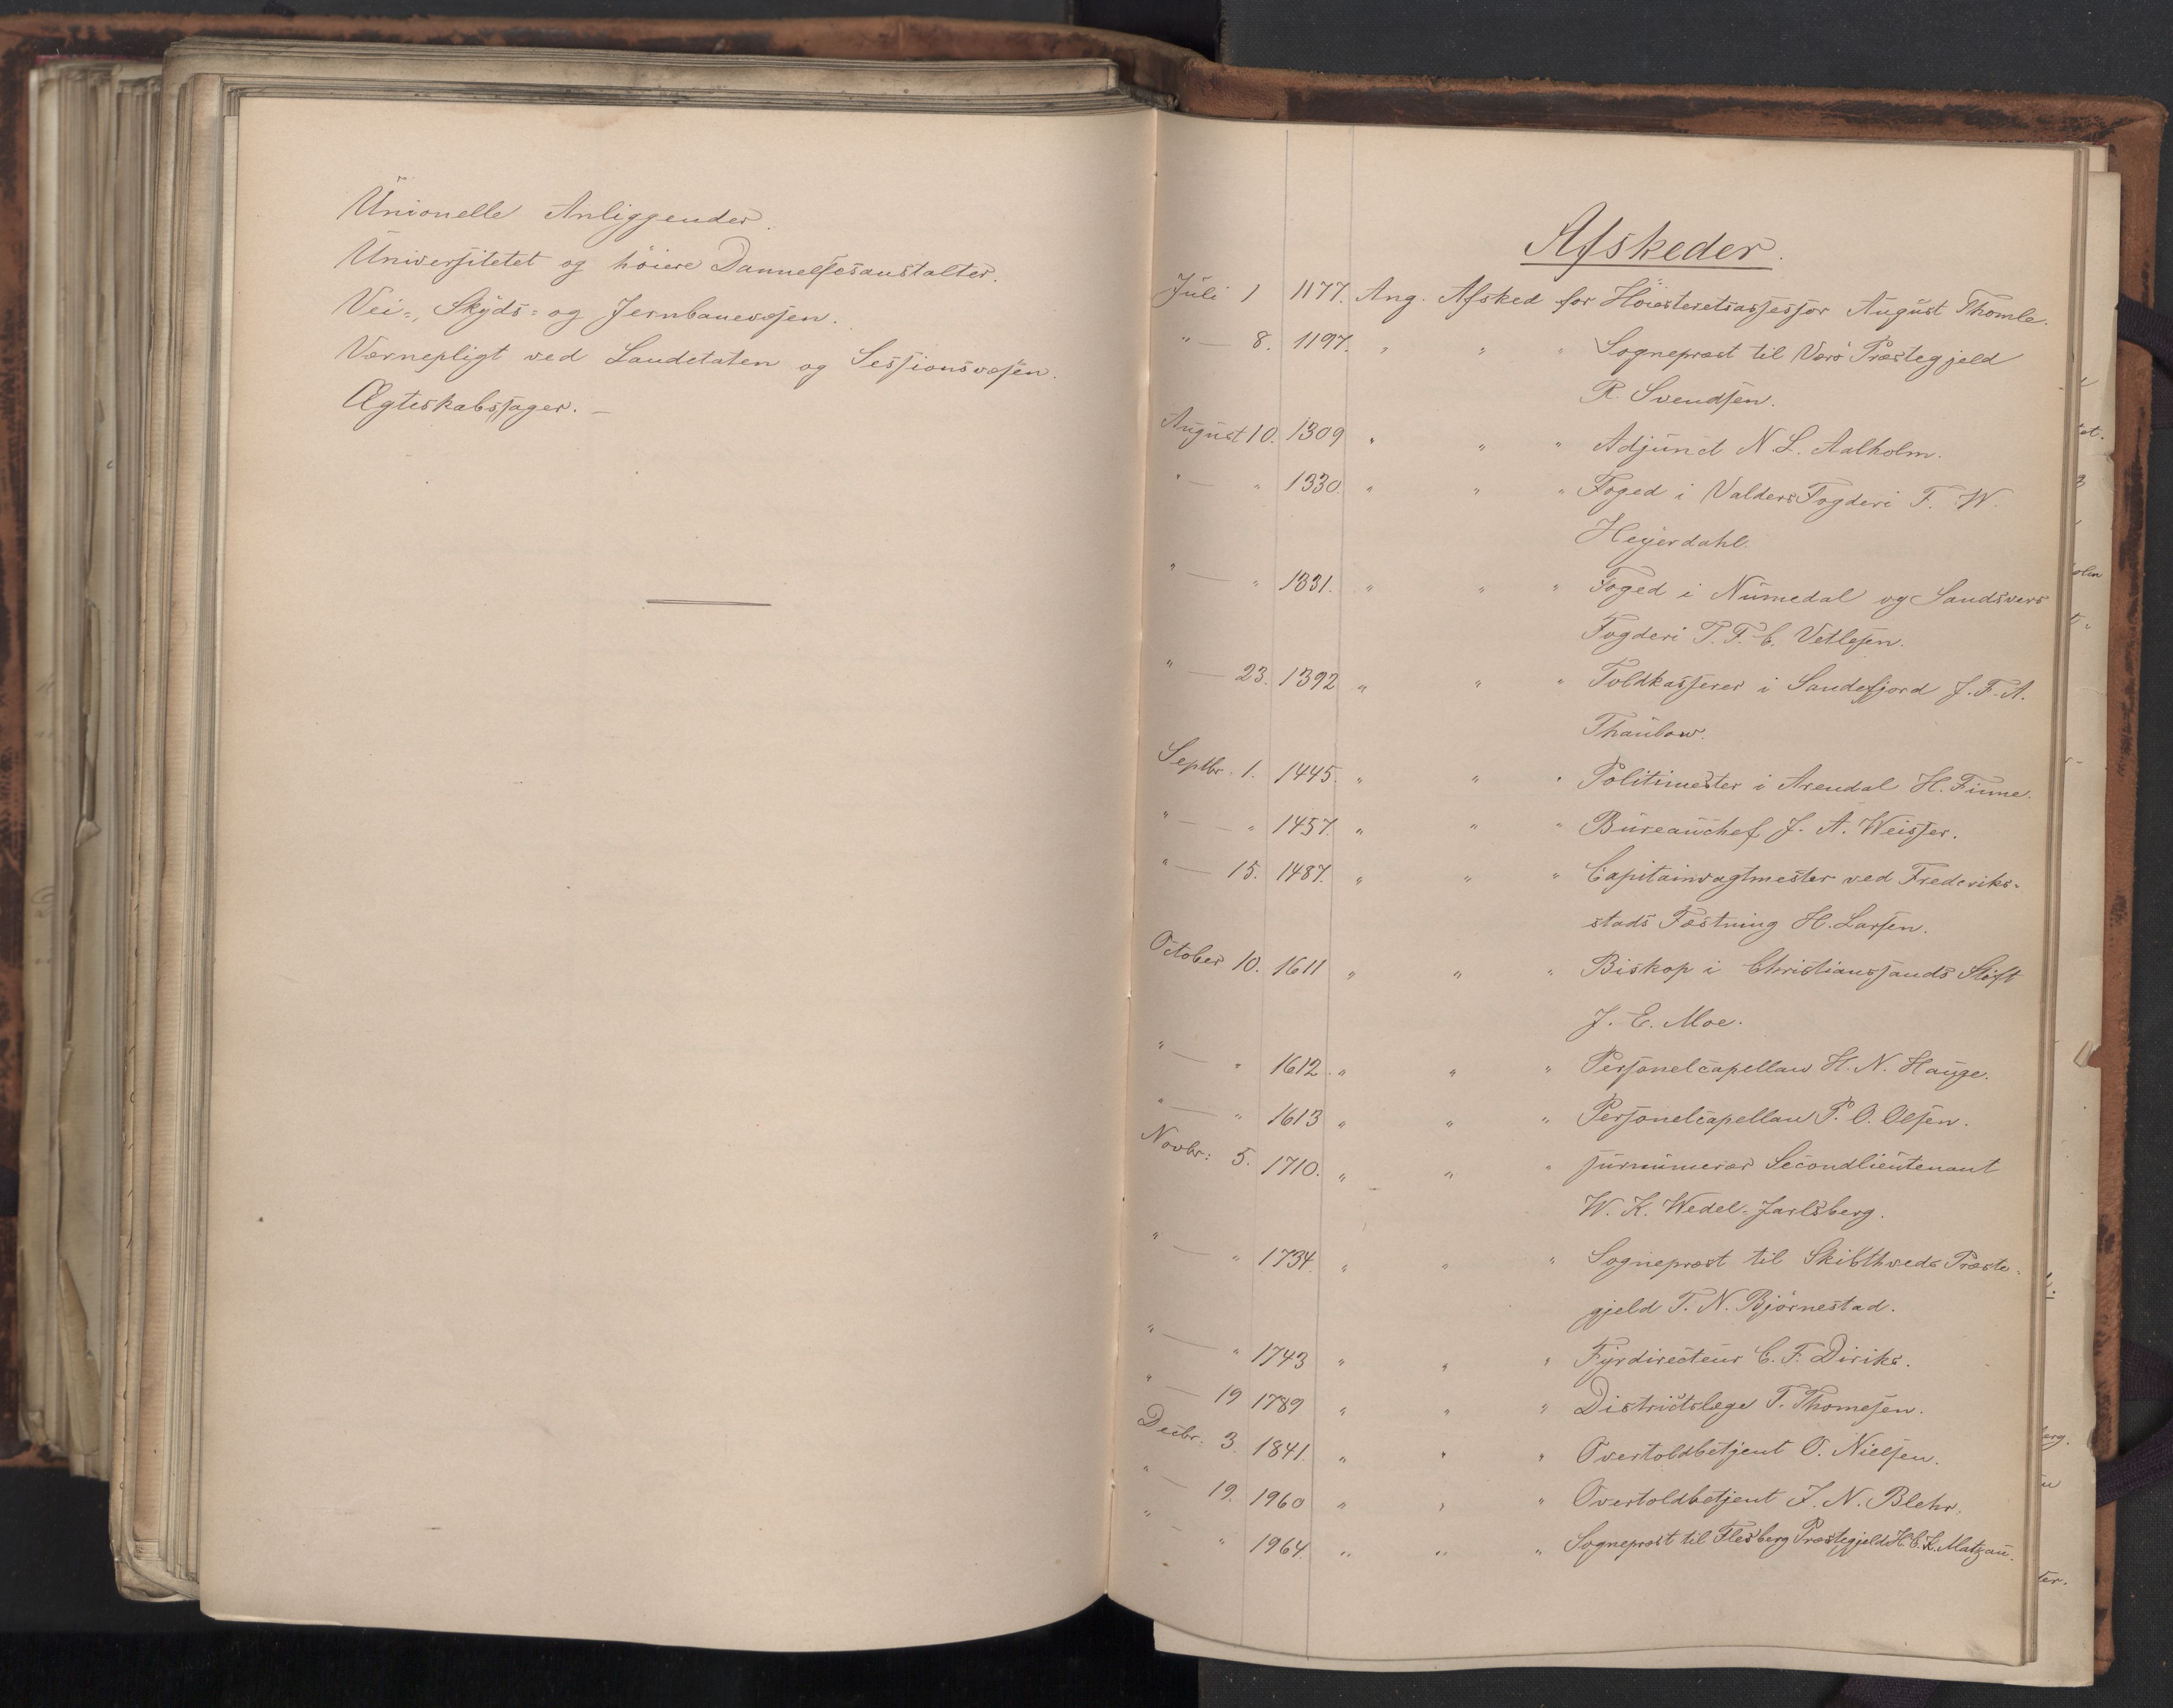 Unionelle Anliggender.
Universitetet og höiere Dannelsesanstalter.
Vei-, Skyds- og Jernbanevæsen.
Værnepligt ved Landetaten og Sessionsvæsen.
Ægteskabssager. —
Afskeder.
Juli 1 1177. Ang. Afsked for Höiesteretsassessor August Thomle.
" — 8. 1197. " " " Sogneprest til Værö Præstegjeld
R. Svendsen.
August 10. 1309 " " " Adjunct N. L. Aalholm.
" — " 1330 " " " Foged i Valders Fogderi F. W.
Heyerdahl.
" — " 1331. " " " Foged i Numedal og Sandsvers
Fogderi T. F. C. Vetlesen.
" — 23. 1392 " " " Toldkasserer i Sandefjord J. F. A.
Thaulow.
Septbr. 1. 1445. " " " Politimester i Arendal H. Finne.
" — " 1457. " " " Bureauchef J. A. Weisser.
" — 15. 1487. " " " Capitainvagtmester ved Frederiks-
stads Fæstning H. Larsen.
October 10. 1611 " " " Biskop i Christianssands Stift
J. E. Moe.
" — " 1612. " " " Personelcapellan H. N. Hauge.
" — " 1613 " " " Personelcapellan P. O. Olsen.
Novbr: 5. 1710. " " " surnumerær Secondlieutenant
W. K. Wedel-Jarlsberg.
" — " 1734. " " " Sogneprest til Skibthveds Præste-
gjeld T. N. Björnestad.
" — " 1743 " " " Fyrdirecteur C. F. Diriks.
" — 19 1789 " " " Districtslæge T. Thomesen.
Decbr. 3. 1841. " " " Overtoldbetjent O. Nielsen.
" — 19. 1960 " " " Overtoldbetjent J. N. Blehr.
" — " 1964. " " " Sogneprest til Flesberg Præstegjeld H. C. K. Matzau.